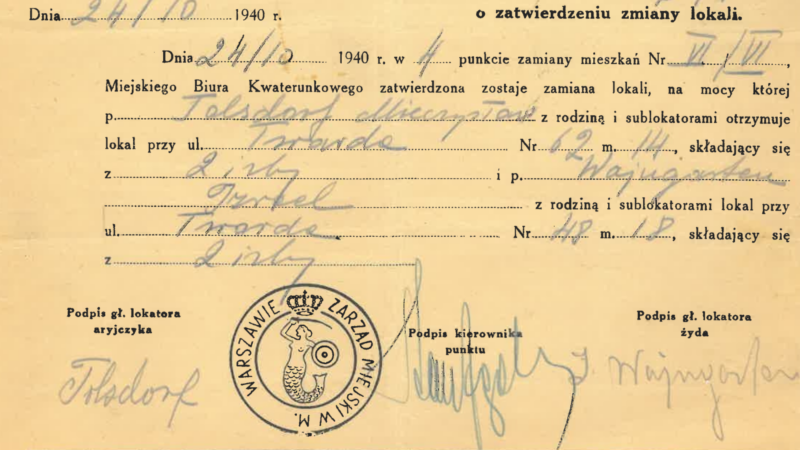 Dnia 24/10 1940 r.
o zatwierdzeniu zmiany lokali.
Dnia 24/10 1940 r. w 4 punkcie zamiany mieszkań Nr VI / VI,
Miejskiego Biura Kwaterunkowego zatwierdzona zostaje zamiana lokali, na mocy której
p. Tolsdorf Mieczysław z rodziną i sublokatorami otrzymuje
lokal przy ul. Twarda Nr 62 m. 14, składający się
z 2 izby i p. Wajngarten
Izrael z rodziną i sublokatorami lokal przy
ul. Twarda Nr 48 m. 18, składający się
z 2 izby
Podpis gł. lokatora
aryjczyka
Podpis kierownika
punktu
Podpis gł. lokatora
żyda
Tolsdorf
ZARZĄD MIEJSKI W M. WARSZAWIE
J. Wajngarten